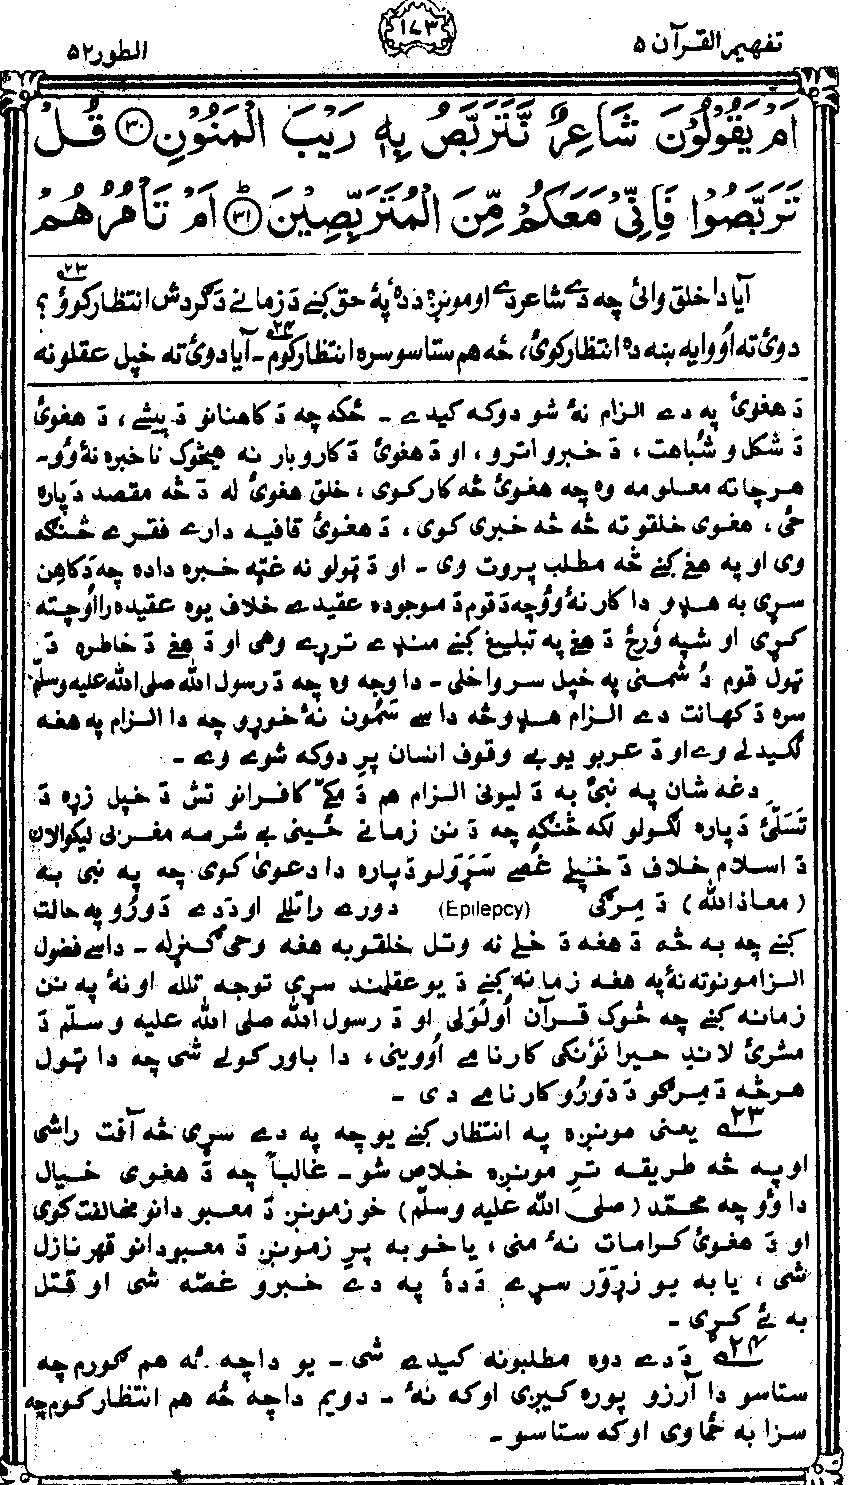 تفهيم القرآن ۵
۱۷۳
الطور ۵۲
اَمْ يَقُوْلُوْنَ شَاعِرٌ نَّتَرَبَّصُ بِهٖ رَيْبَ الْمَنُوْنِ ۳۰ قُلْ
تَرَبَّصُوْا فَاِنِّيْ مَعَكُمْ مِّنَ الْمُتَرَبِّصِيْنَ ؕ ۳۱ اَمْ تَاْمُرُهُمْ
آيا دا خلق وائى چه دے شاعر دے او مونږه دده په حق كښے د زمانے د گردش انتظار كوؤ ۲۳؟
دوئ ته اووايه ښه ده انتظار كوئ، څه هم ستاسو سره انتظار كوم ۲۴۔ آيا دوئ ته خپل عقلونه
د هغوئ په دے الزام نۀ شو دوكه كيدے ۔ ځكه چه د كاهنانو د پيشے، د هغوئ
د شكل و شباهت، د خبرو اترو، او د هغوئ د كاروبار نه هيڅوک ناخبره نۀ وو۔
هر چا ته معلومه وه چه هغوئ څه كار كوى، خلق هغوئ له د څه مقصد دپاره
ځى، هغوى خلقو ته څه څه خبرى كوى، د هغوئ قافيه دارے فقرے څنګه
وى او په هغے كښے څه مطلب پروت وى ۔ او د ټولو نه غټه خبره داده چه د كاهن
سړى به هډو دا كار نۀ وو چه د قوم د موجوده عقيدے خلاف يوه عقيده را اوچته
كړى او شپه ورځ د هغے په تبليغ كښے منډے تررے وهى او د هغے د خاطره د
ټول قوم دشمنى په خپل سر واخلى ۔ دا وجه وه چه د رسول الله صلى الله عليه وسلم
سره د كهانت دے الزام هډو څه داسے سمون نۀ خوړو چه دا الزام په هغه
لګيدلے وے او د عربو يو بے وقوف انسان پرِ دوكه شوے وے ۔
دغه شان په نبىؐ به د ليونى الزام هم د مكے كافرانو تش د خپل زړه د
تسلئ دپاره لګولو لكه څنګه چه د نن زمانے ځينى بے شرمه مغربى ليكوالان
د اسلام خلاف د خپلے غصے سړولو دپاره دا دعوىٰ كوى چه په نبى به
(معاذ الله) د ميرګى (Epilepcy) دورے راتللے او د دے دورو په حالت
كښے چه به څه د هغه د خلے نه وتل خلقو به هغه وحى ګنړله ۔ داسے فضول
الزامونو ته نۀ په هغه زمانه كښے د يو عقلمند سړى توجه تلله او نۀ په نن
زمانه كښے چه څوک قرآن اولولى او د رسول الله صلى الله عليه وسلم د
مشرئ لاندِ حيرانوونكى كارنامے اووينى، دا باور كولے شى چه دا ټول
هر څه د ميرګو د دورو كارنامے دى ۔
۲۳ يعنى مونږه په انتظار كښے يو چه په دے سړى څه آفت راشى
او په څه طريقه ترِ مونږه خلاص شو ۔ غالباً چه د هغوى خيال
دا وو چه محمد (صلى الله عليه وسلم) خو زمونږ د معبودانو مخالفت كوى
او د هغوئ كرامات نۀ منى، يا خو به پرِ زمونږ د معبودانو قهر نازل
شى، يا به يو زړور سړے د دۀ په دے خبرو غصه شى او قتل
به ئے كړى ۔
۲۴ د دے دوه مطلبونه كيدے شى ۔ يو دا چه څه هم ګورم چه
ستاسو دا آرزو پوره كيږى اوكه نۀ ۔ دويم دا چه څه هم انتظار كوم چه
سزا به ځما وى اوكه ستاسو ۔